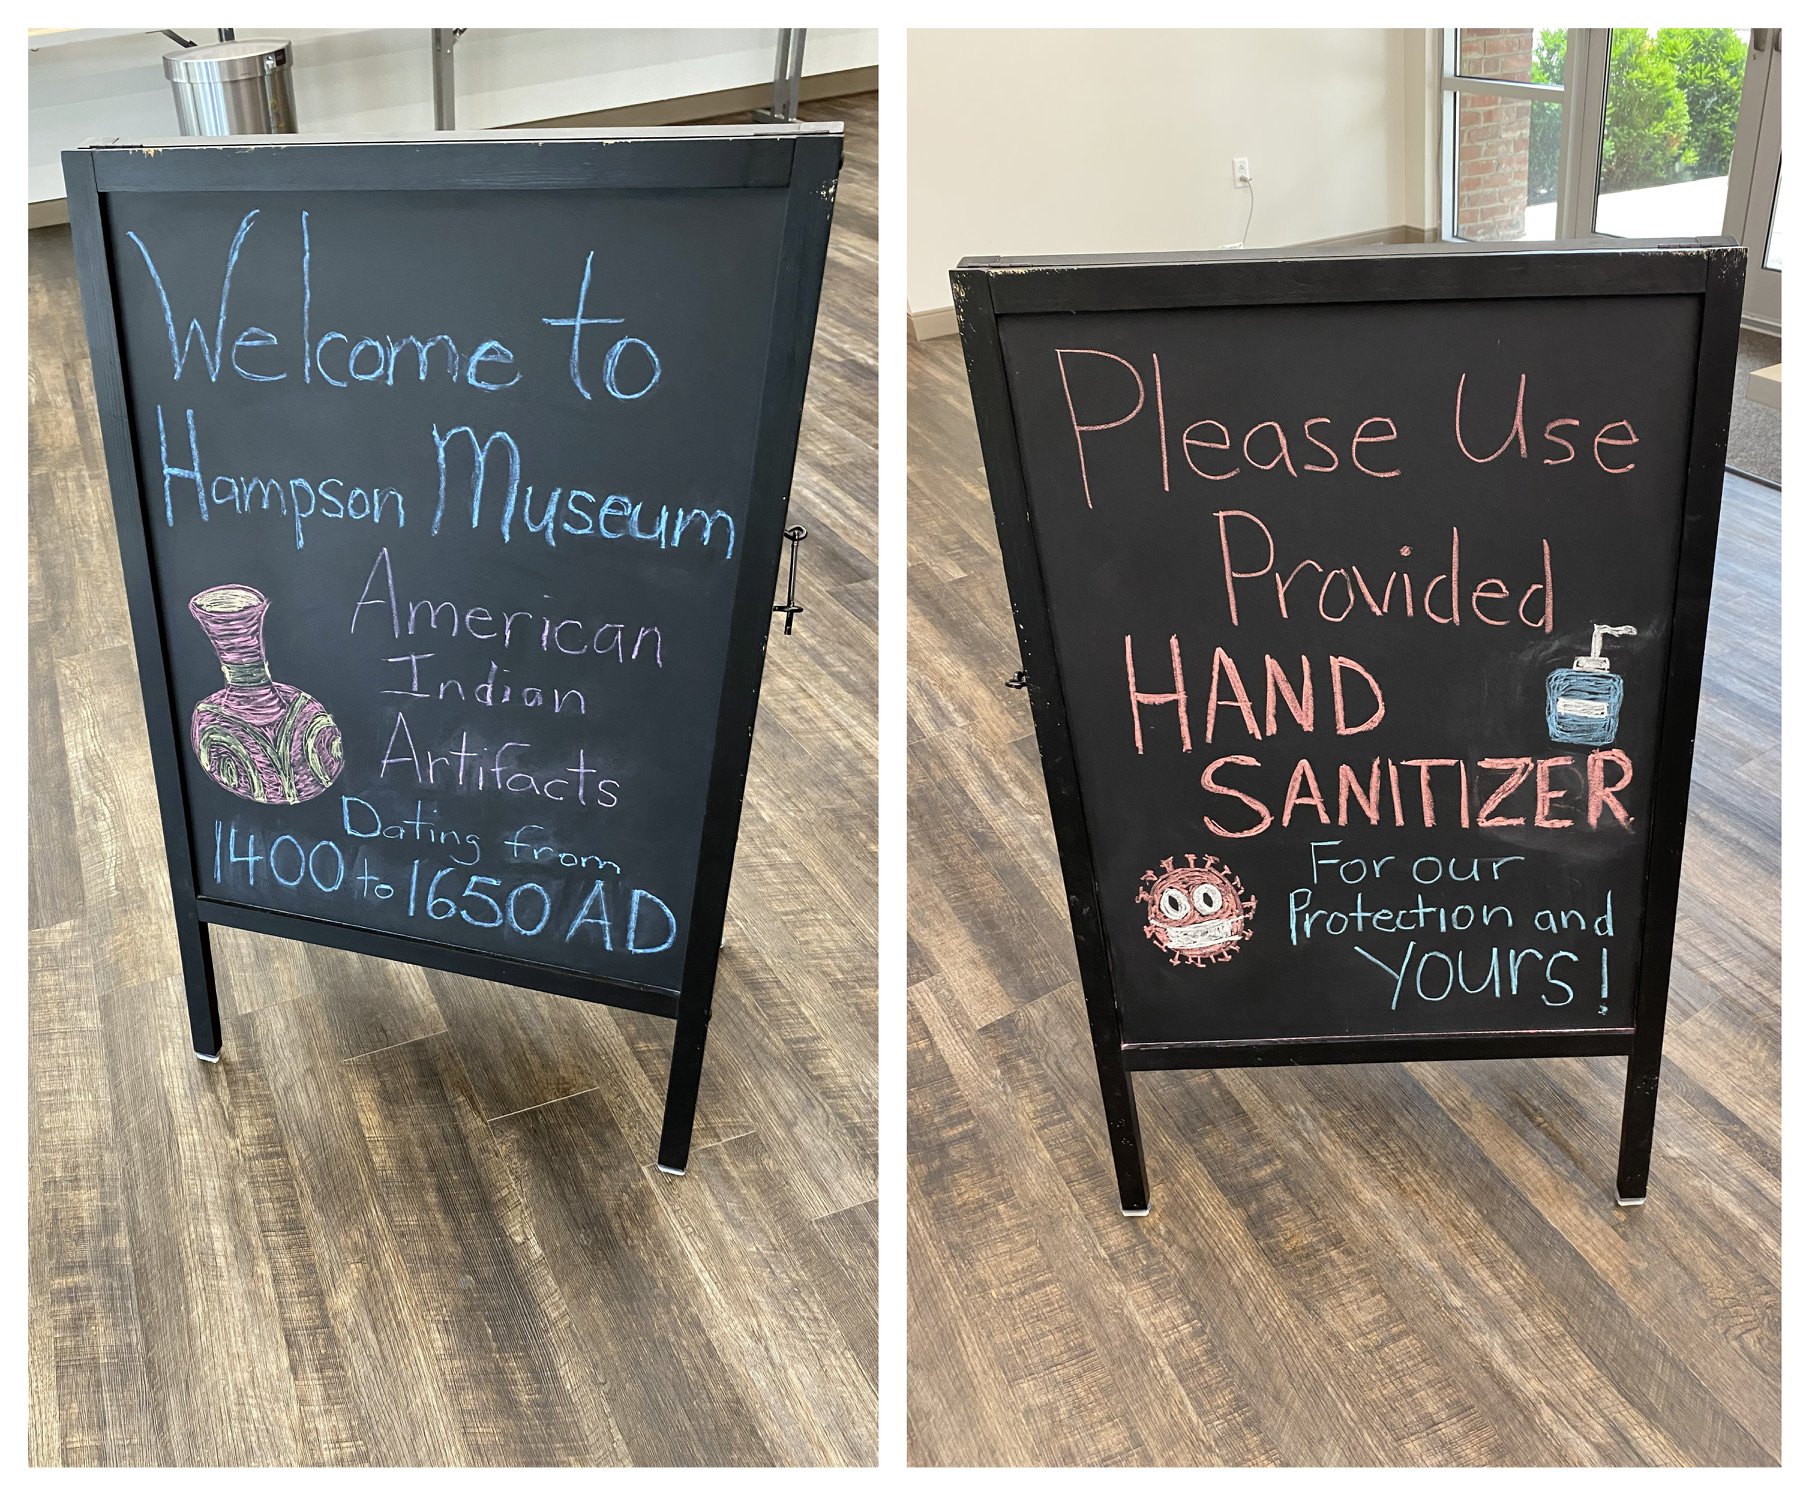 Welcome to
Hampson Museum
American
Indian
Artifacts
Dating from
1400 to 1650 AD
Please Use
Provided
HAND
SANITIZER
For our
Protection and
Yours!